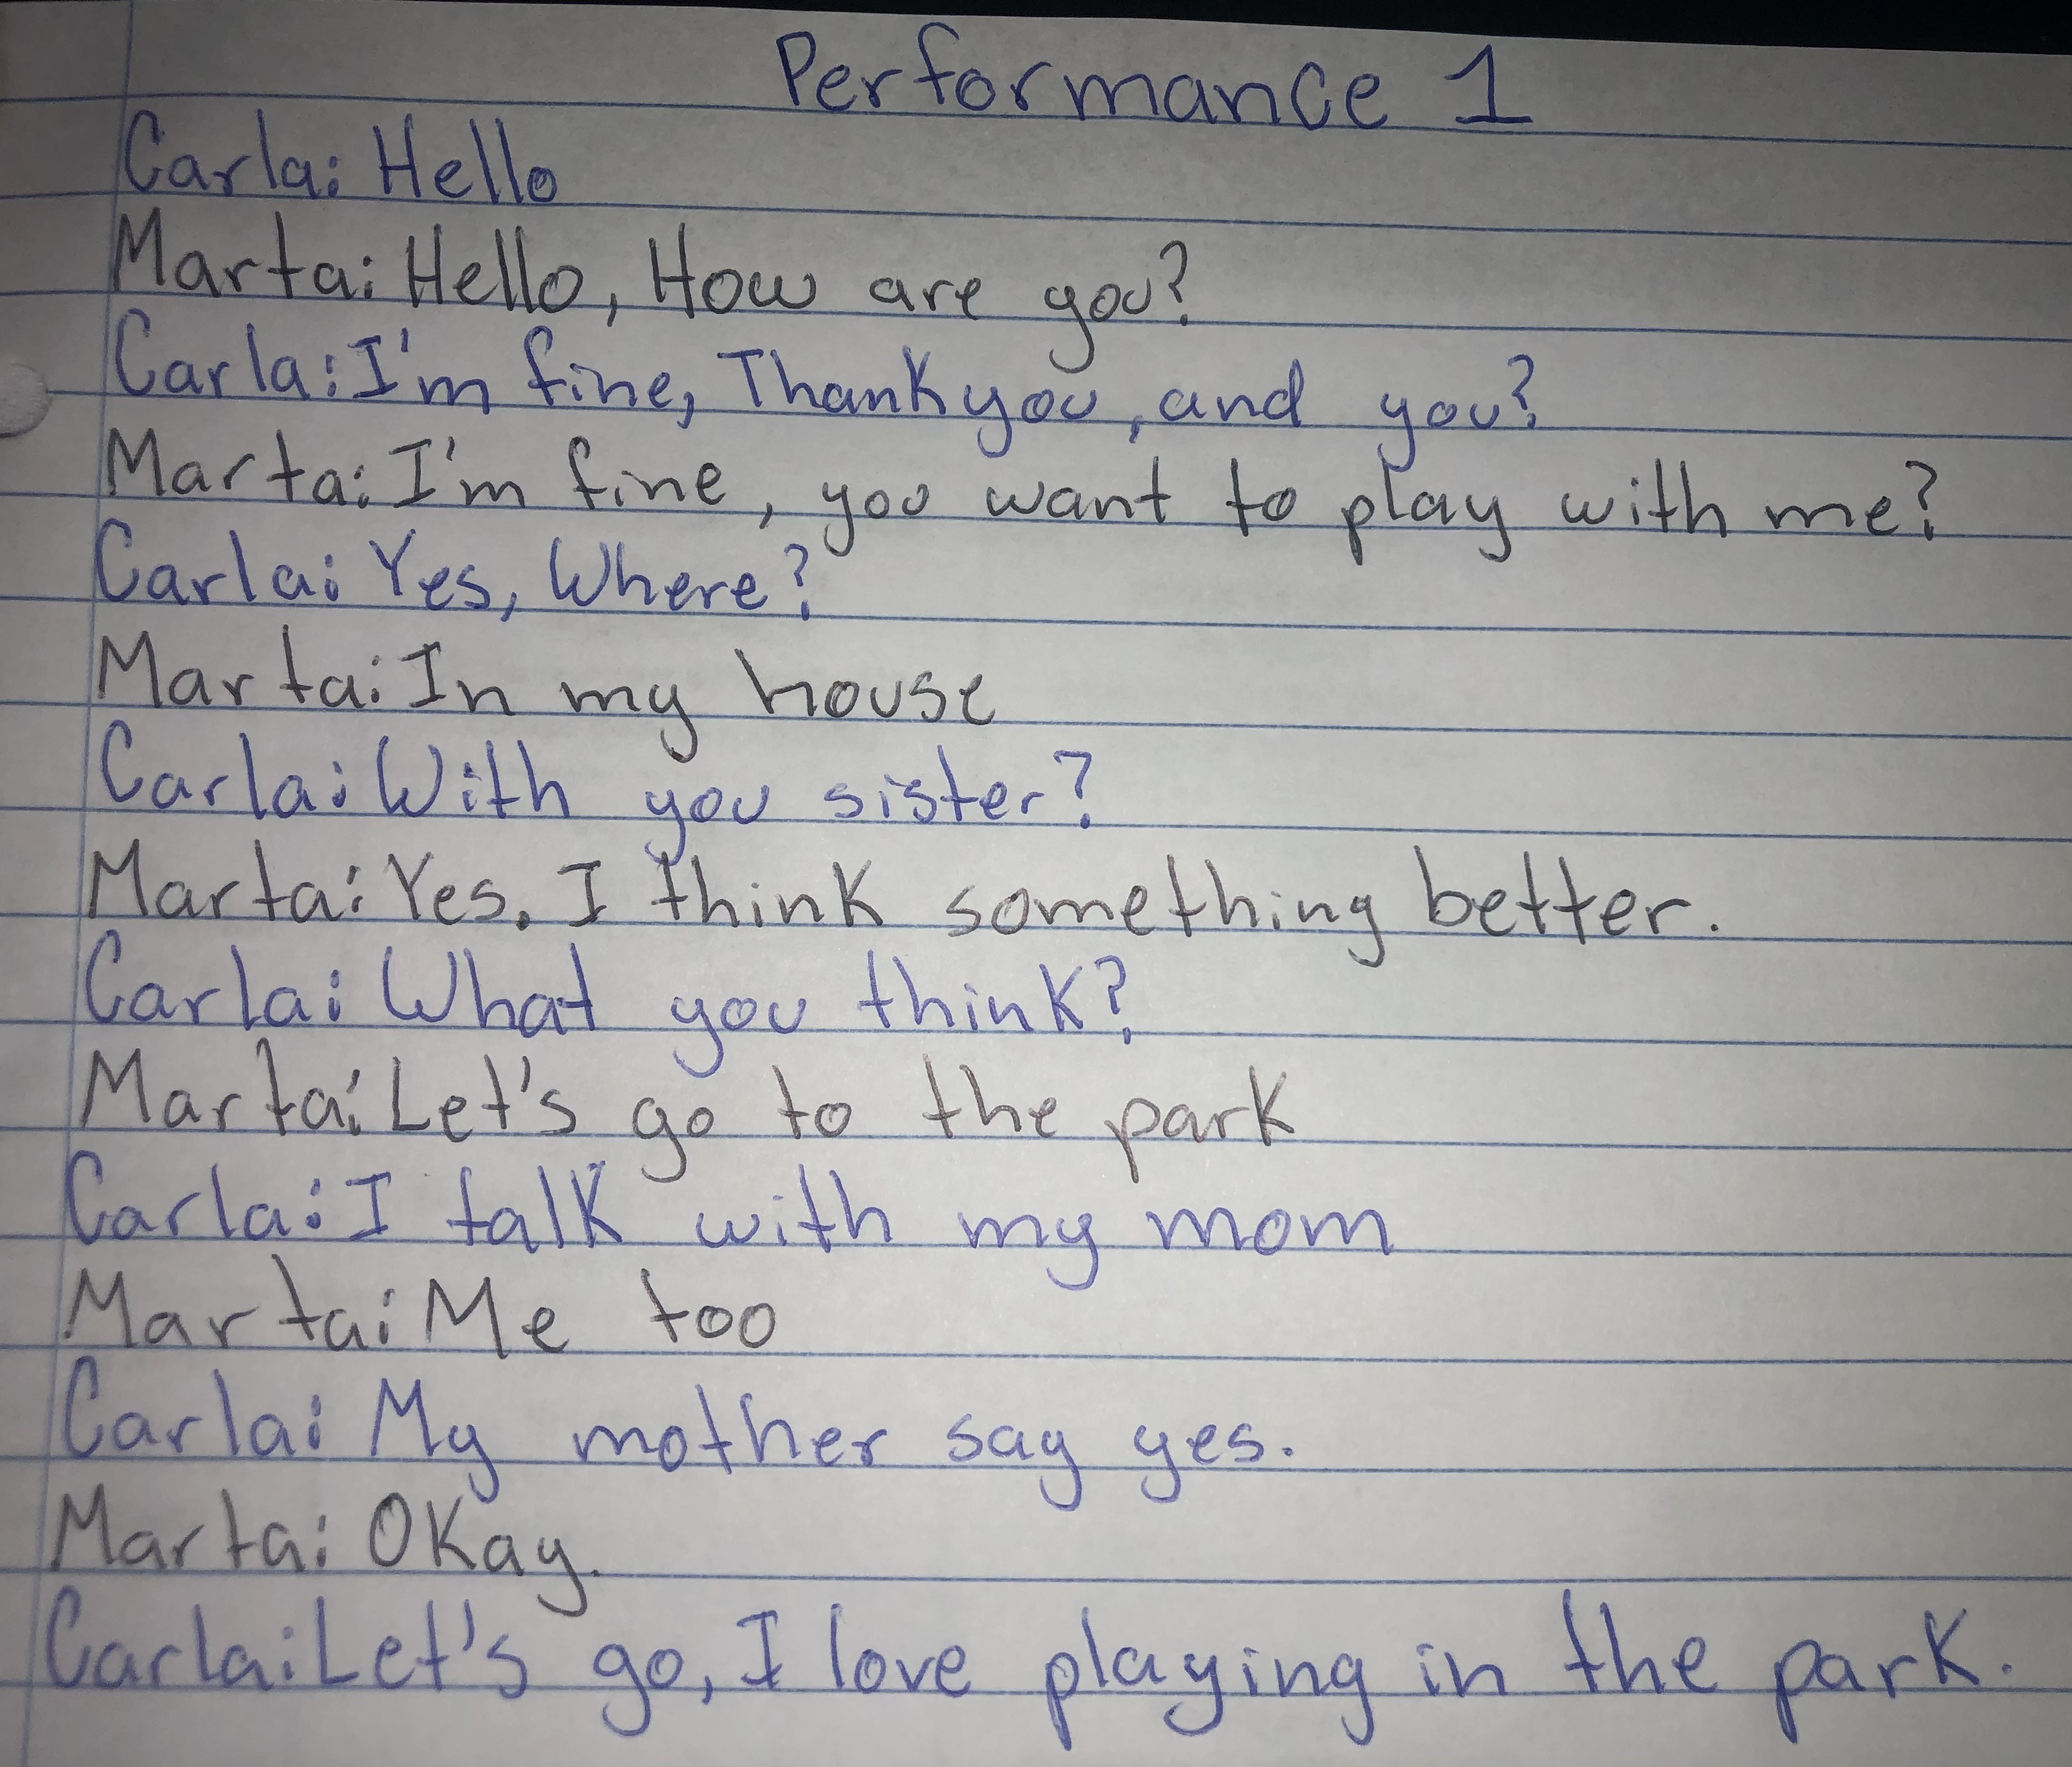 Performance 1
Carla: Hello
Marta: Hello, How are you?
Carla: I'm fine, Thank you, and you?
Marta: I'm fine, you want to play with me?
Carla: Yes, Where?
Marta: In my house
Carla: With you sister?
Marta: Yes. I think something better.
Carla: What you think?
Marta: Let's go to the park
Carla: I talk with my mom
Marta: Me too
Carla: My mother say yes.
Marta: Okay.
Carla: Let's go, I love playing in the park.